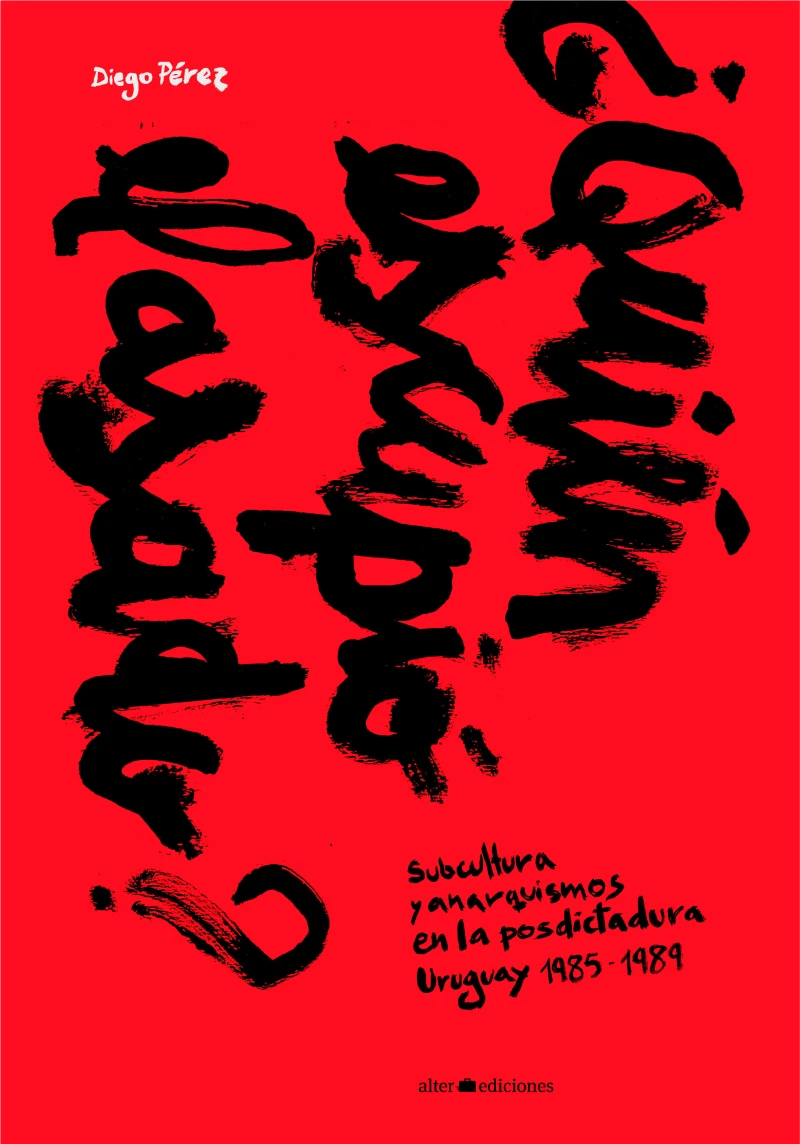 Diego Pérez
¿Quién
escupió
el asado?
Subcultura
y anarquismos
en la posdictadura
Uruguay 1985-1989
alter ediciones